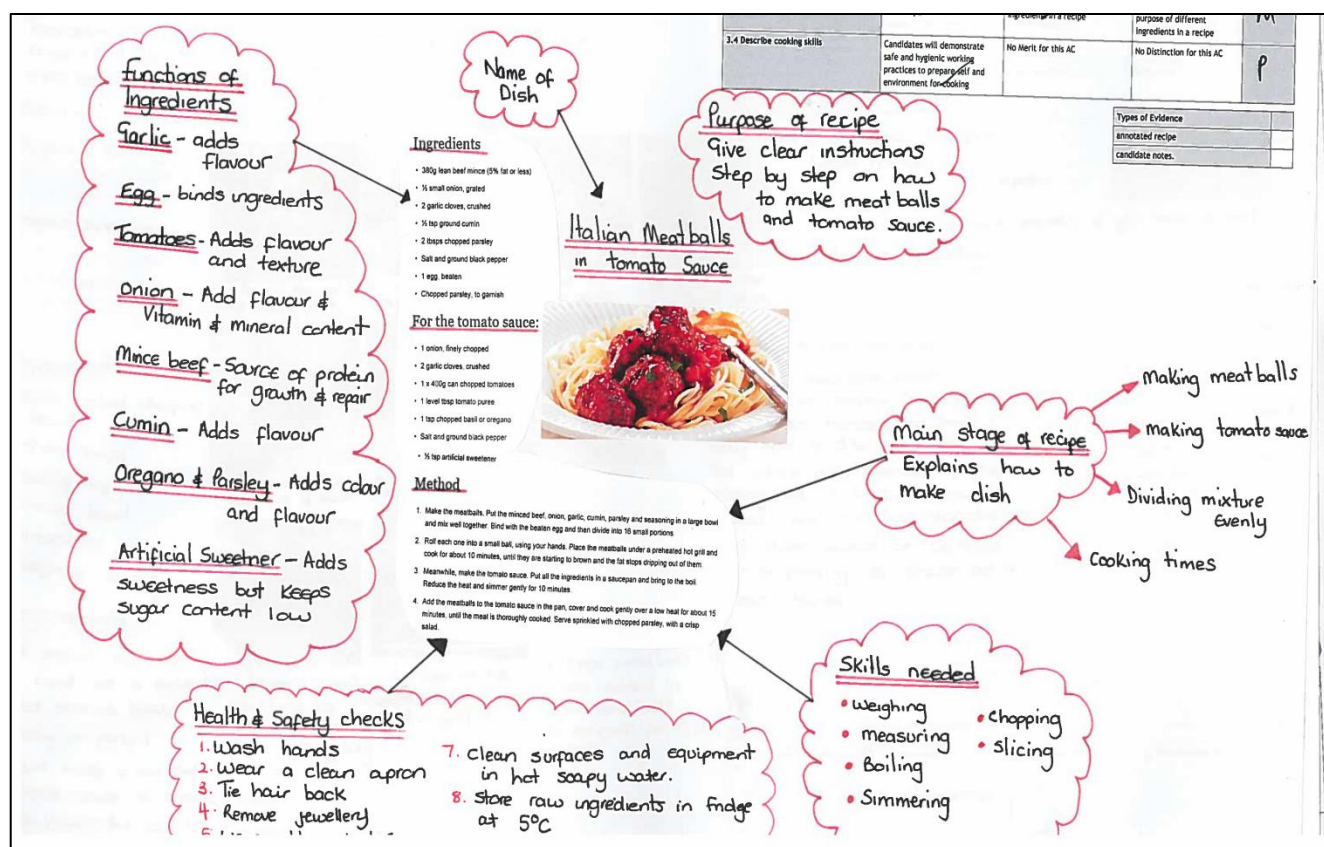 ingredients in a recipe
purpose of different
ingredients in a recipe
M
3.4 Describe cooking skills
Candidates will demonstrate
safe and hygienic working
practices to prepare self and
environment for cooking
No Merit for this AC
No Distinction for this AC
P
Types of Evidence
annotated recipe
candidate notes.
Functions of
Ingredients
Garlic - adds
flavour
Egg - binds ingredients
Tomatoes - Adds flavour
and texture
Onion - Add flavour &
Vitamin & mineral content
Mince beef - Source of protein
for growth & repair
Cumin - Adds flavour
Oregano & Parsley - Adds colour
and flavour
Artificial Sweetner - Adds
sweetness but keeps
sugar content low
Name of
Dish
Purpose of recipe
Give clear instructions
Step by step on how
to make meat balls
and tomato sauce.
Italian Meatballs
in tomato Sauce
Ingredients
• 380g lean beef mince (5% fat or less)
• ½ small onion, grated
• 2 garlic cloves, crushed
• ½ tsp ground cumin
• 2 tbsps chopped parsley
• Salt and ground black pepper
• 1 egg, beaten
• Chopped parsley, to garnish
For the tomato sauce:
• 1 onion, finely chopped
• 2 garlic cloves, crushed
• 1 x 400g can chopped tomatoes
• 1 level tbsp tomato puree
• 1 tsp chopped basil or oregano
• Salt and ground black pepper
• ½ tsp artificial sweetener
Method
1. Make the meatballs. Put the minced beef, onion, garlic, cumin, parsley and seasoning in a large bowl
and mix well together. Bind with the beaten egg and then divide into 16 small portions.
2. Roll each one into a small ball, using your hands. Place the meatballs under a preheated hot grill and
cook for about 10 minutes, until they are starting to brown and the fat stops dripping out of them.
3 Meanwhile, make the tomato sauce. Put all the ingredients in a saucepan and bring to the boil.
Reduce the heat and simmer gently for 10 minutes.
4. Add the meatballs to the tomato sauce in the pan, cover and cook gently over a low heat for about 15
minutes, until the meal is thoroughly cooked. Serve sprinkled with chopped parsley, with a crisp
salad.
Main stage of recipe
Explains how to
make dish
Making meatballs
making tomato sauce
Dividing mixture
Evenly
Cooking times
Skills needed
• Weighing
• measuring
• Boiling
• Simmering
• Chopping
• Slicing
Health & Safety checks
1. Wash hands
2. Wear a clean apron
3. Tie hair back
4. Remove jewellery
7. Clean surfaces and equipment
in hot soapy water.
8. Store raw ingredients in fridge
at 5°C